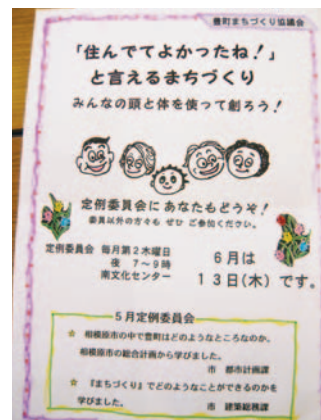 豊町まちづくり協議会
「住んでてよかったね！」
と言えるまちづくり
みんなの頭と体を使って創ろう！
定例委員会にあなたもどうぞ！
委員以外の方々も ぜひ ご参加ください。
定例委員会 毎月第2木曜日
夜 7～9時
南文化センター
6月は
13日(木) です。
5月定例委員会
☆ 相模原市の中で豊町はどのようなところなのか、
相模原市の総合計画から学びました。
市 都市計画課
☆ 『まちづくり』でどのようなことができるのかを
学びました。
市 建築総務課